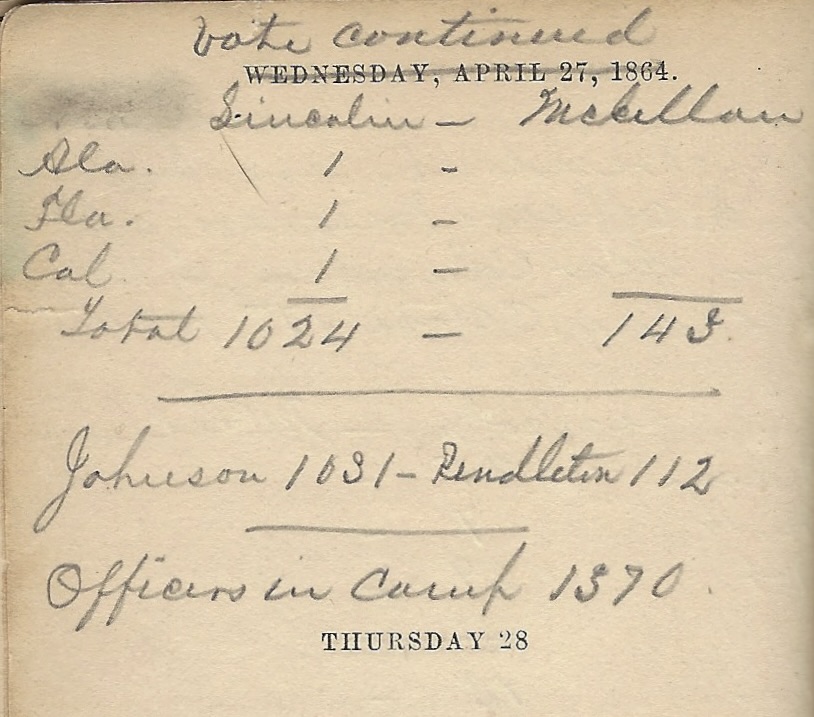 Vote continued
WEDNESDAY, APRIL 27, 1864.
Lincolin - McLellan
Ala. 1 -
Fla. 1 -
Cal 1 -
Total 1024 - 143.
Johnson 1031 - Pendleton 112
Officers in Camp 1370.
THURSDAY 28